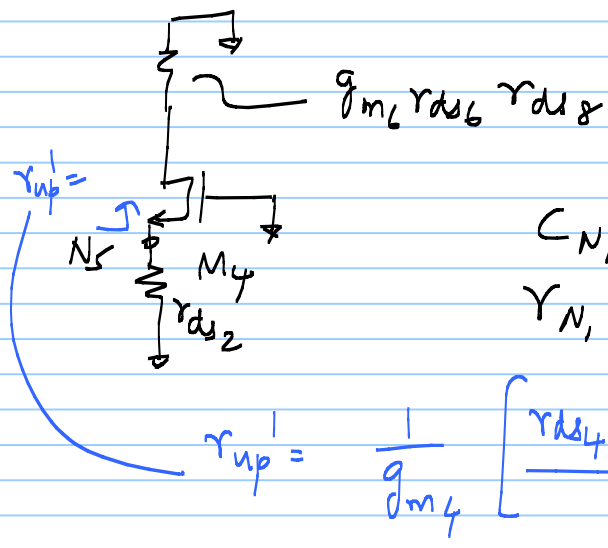 gm6 rds6 rds8
rup' =
N5
M4
rds2
CN,
rN,
rup' = 1/gm4 [ rds4